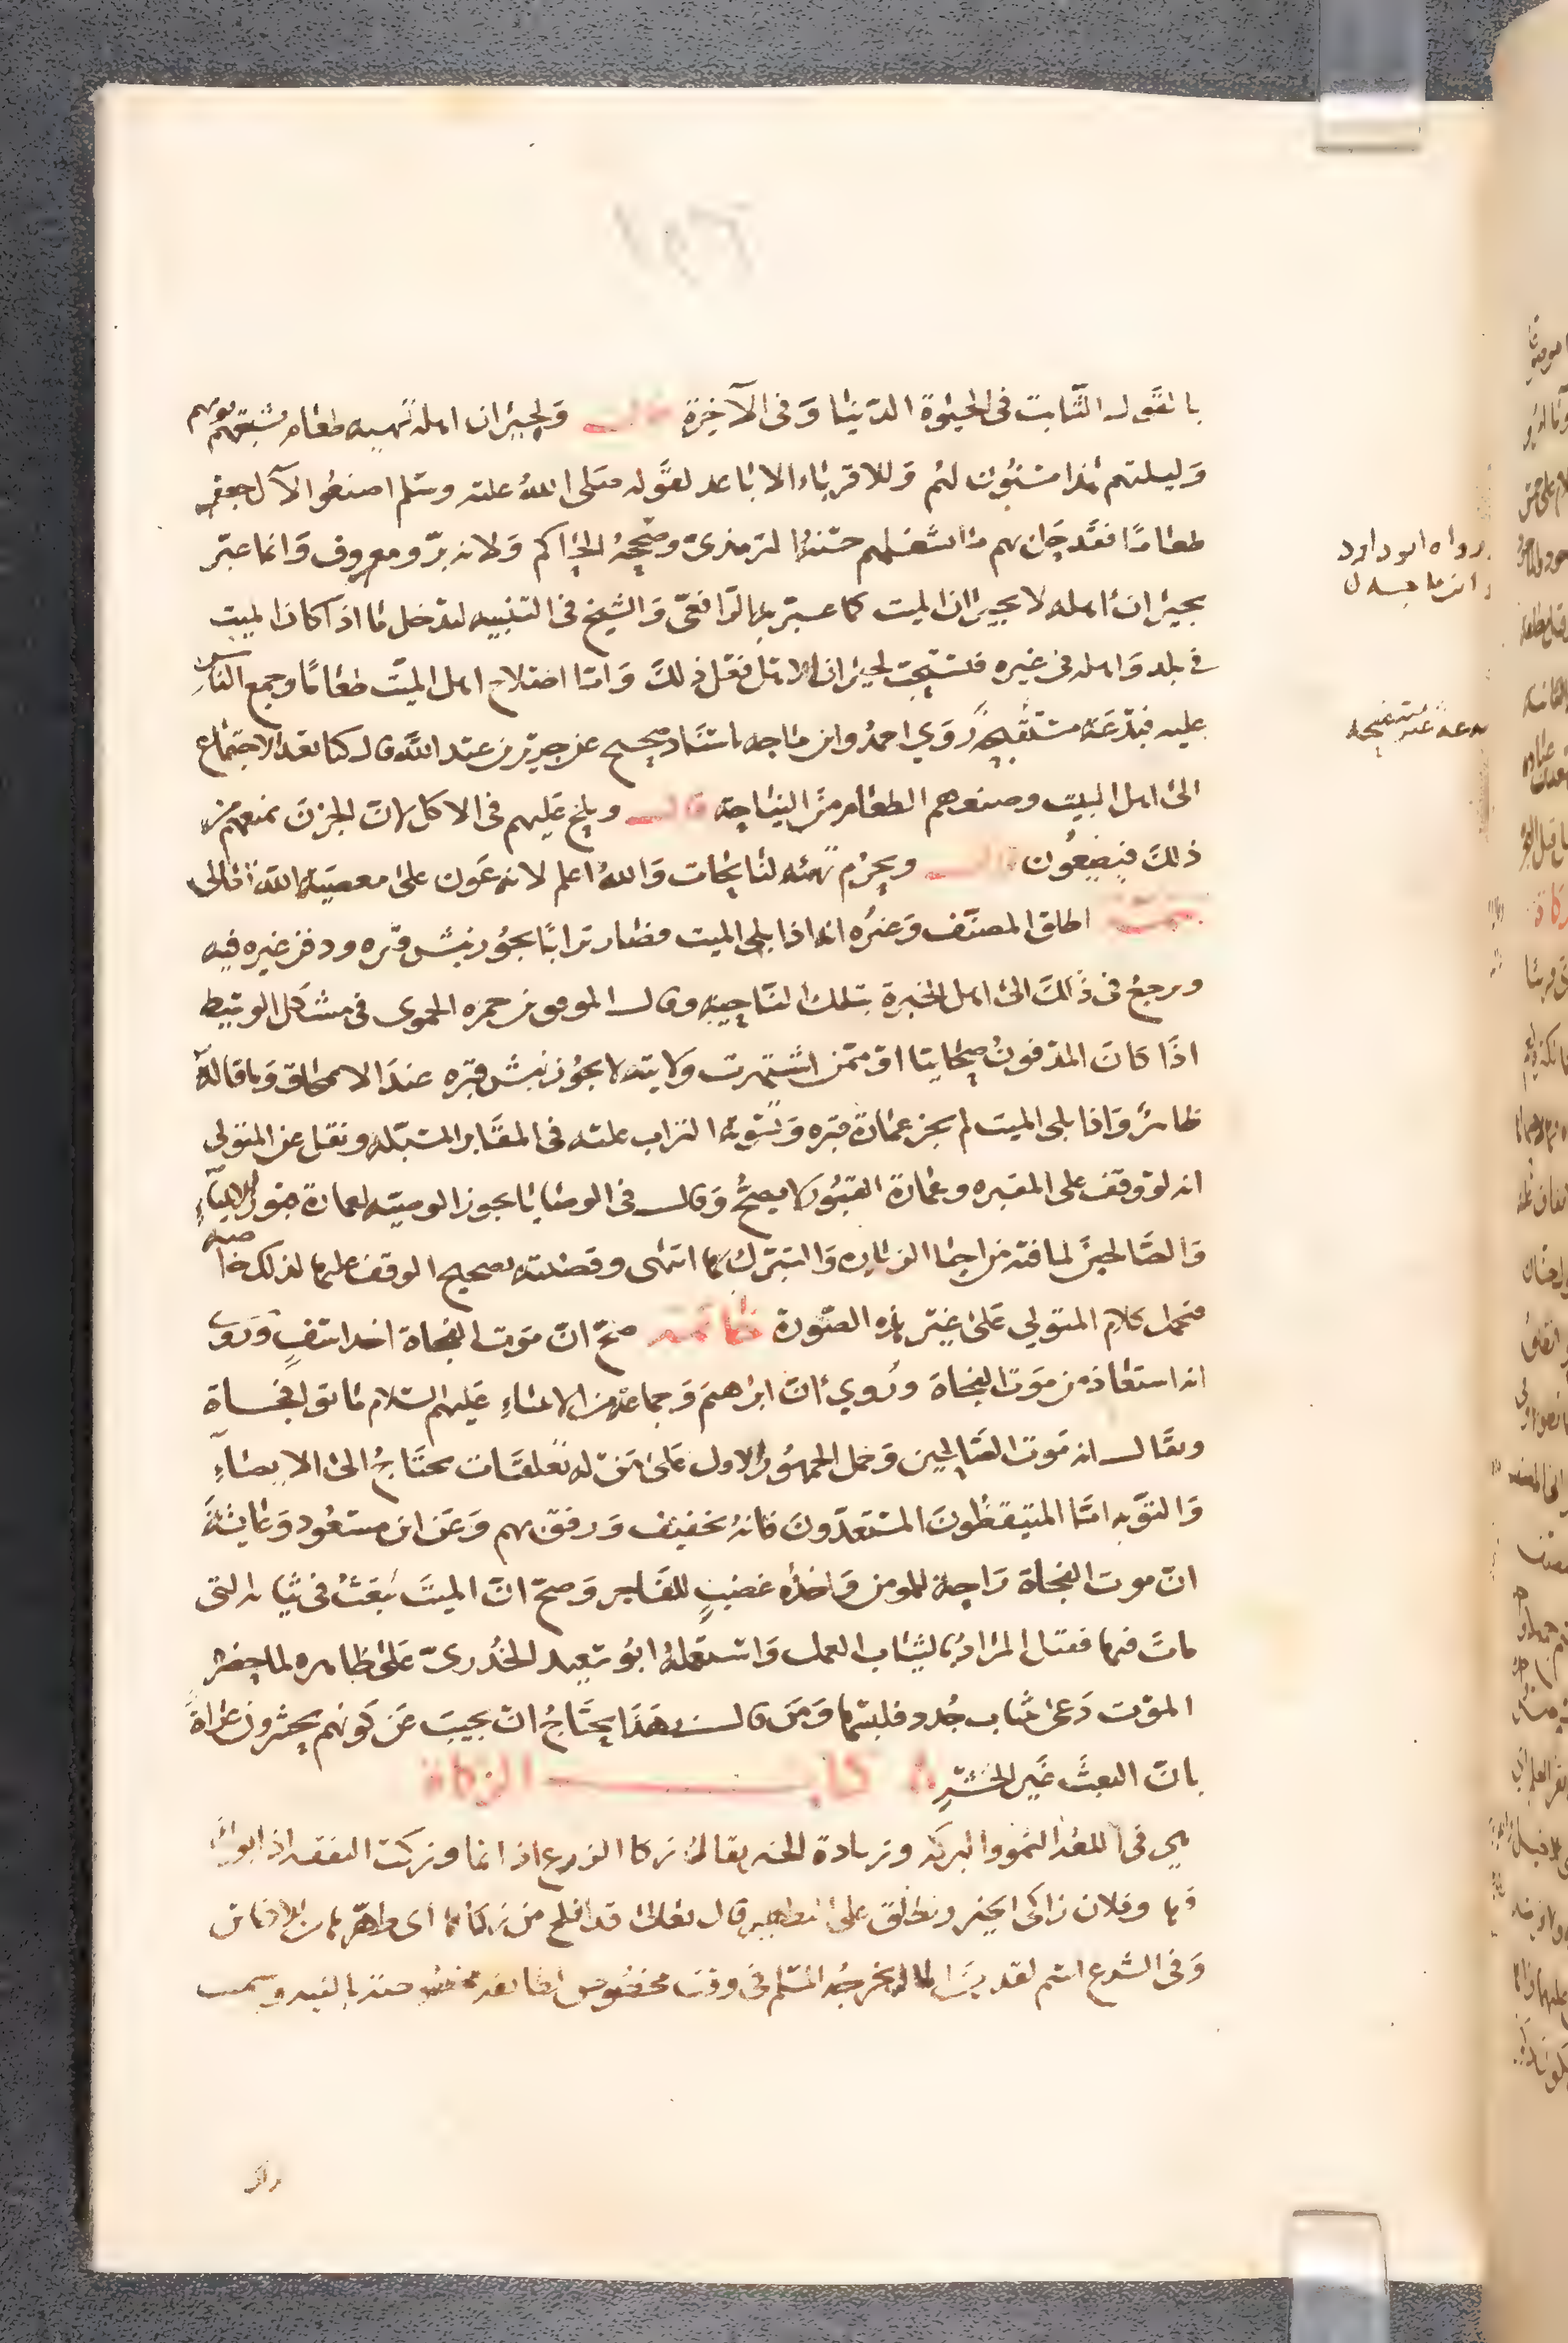 بالقول الثابت في الحيوة الدنيا وفي الآخرة قال ولجيران اهله تهيية طعام يشبعهم يومهم
وليلتهم هذا مسنون لهم وللاقرباء الاباعد لقوله صلى الله عليه وسلم اصنعوا لآل جعفر
طعاما فقد جاءهم ما اشغلهم حسنه الترمذي وصححه الحاكم ولانه بر ومعروف وانما عبر
بجيران اهله لا بجيران الميت كما عبر بها الرافعي والشيخ في التنبيه لتدخل ما اذا كان الميت
في بلد واهله في غيره فيستحب لجيران الاهل فعل ذلك واما اصلاح اهل الميت طعاما وجمع الناس
عليه فبدعة مستقبحة روي احمد وابن ماجه باسناد صحيح عن جرير بن عبد الله قال كنا نعد الاجتماع
الى اهل الميت وصنعهم الطعام من النياحة قال ويلح عليهم في الاكل لان الحزن يمنعهم من
ذلك فيضعفون قال ويحرم تهيئه لنائحات والله اعلم لانه عون على معصية الله تعالى
تتمة اطلق المصنف وغيره انه اذا بلى الميت فصار ترابا يجوز نبش قبره ودفن غيره فيه
ويرجع في ذلك الى اهل الخبرة بتلك الناحية وقال الموفق بن حمزه الحموي في مشكل الوسيط
اذا كان المدفون صحابيا او ممن اشتهرت ولايته لا يجوز نبش قبره عند الانمحاق وما قاله
ظاهر واذا بلى الميت لم يجز عمارة قبره وتسوية التراب عليه في المقابر المسبلة ونقل عن المتولي
انه لو وقف على المقبره وعمارة القبور لا يصح وقال في الوصايا يجوز الوصية لعمارة قبور الانبياء
والصالحين لما فيه من احيا الزياره والتبرك بها انتهى وقضيته تصحيح الوقف عليها لذلك
فيحمل كلام المتولي على غير هذه الصورة خاتمة صح ان موت الفجاة اخذ اسف وروى
انه استعاذ من موت الفجاة وروي ان ابراهيم وجماعة من الانبياء عليهم السلام ماتوا فجاة
ويقال انه موت الصالحين وحمل الجمهور الاول على من له تعلقات يحتاج الى الايصاء
والتوبه اما المتيقظون المستعدون فانه تخفيف ورفق بهم وعن ابن مسعود وعايشة
ان موت الفجاة راحة للمومن واخذه غضب للفاجر وصح ان الميت يبعث في ثيابه التي
مات فيها فقيل المراد بالثياب العمل واستعمله ابو سعيد الخدري على ظاهره لما حضره
الموت دعى بثياب جدد فلبسها ومن قال بهذا يحتاج ان يجيب عن كونهم يحشرون عراة
بان البعث غير الحشر كتاب الزكاة
هي في اللغة النمو والبركة وزيادة الخير يقال زكا الزرع اذا نما وزكت النفقة اذا بورك
فيها وفلان زاكى الخير وتطلق على التطهير قال تعالى قد افلح من زكاها اى طهرها من الادناس
وفي الشرع اسم لقدر من المال يخرجه المسلم في وقت مخصوص لطائفة مخصوصة بالنية وسميت
رواه ابو داود
وابن ماجه
بدعة غير مستحبة